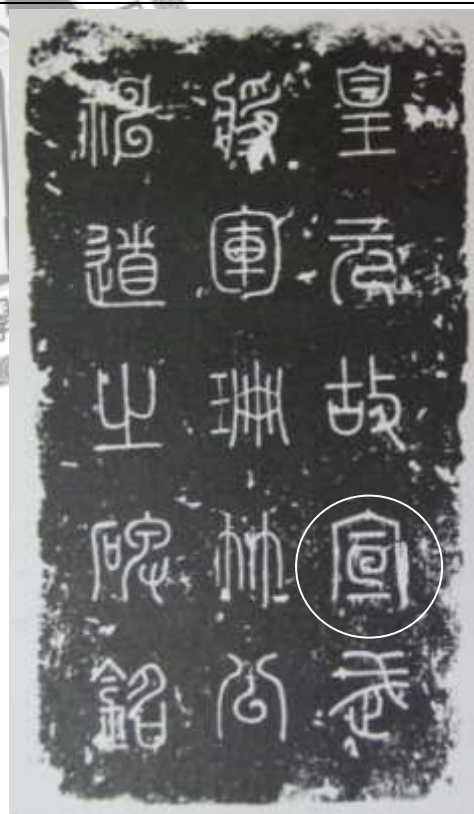 皇元故宣武
將軍珊竹公
神道之碑銘